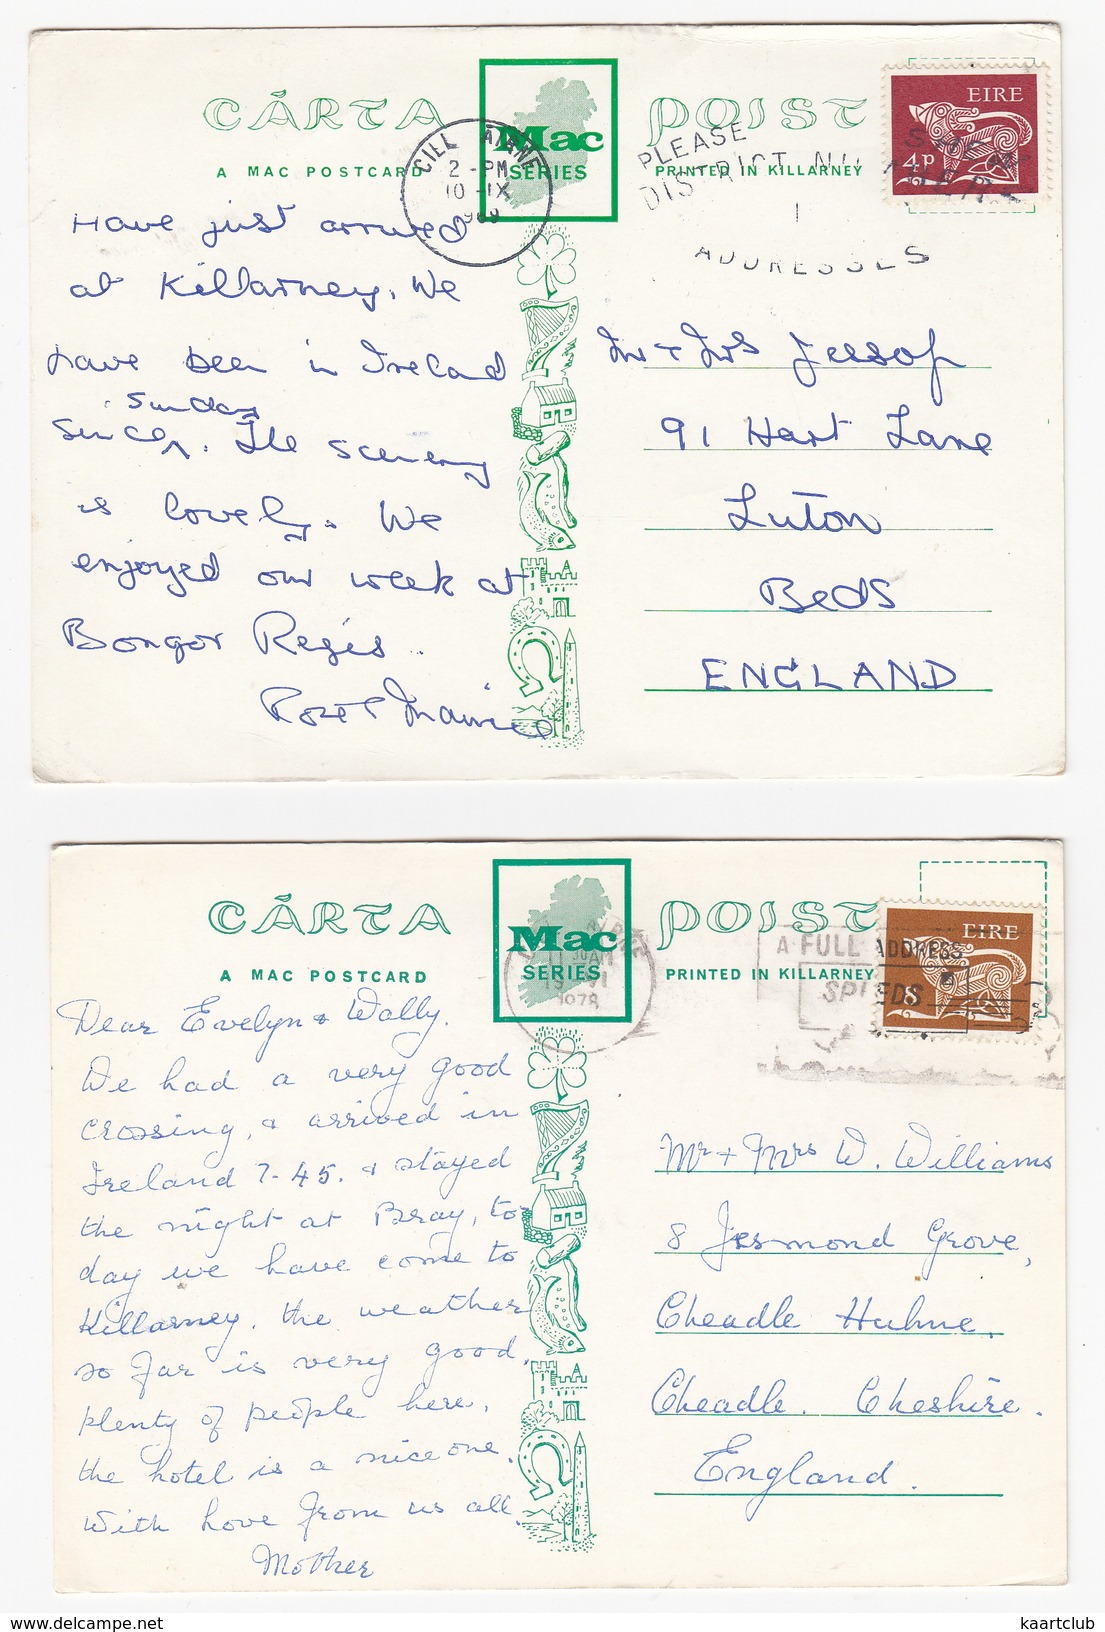 CÁRTA POIST
Mac
SERIES
A MAC POSTCARD
PRINTED IN KILLARNEY
EIRE
4p
CILL AIRNE
2-PM
10-IX
1969
PLEASE
DISTRICT
ADDRESSES
Have just arrived
at Killarney. We
have been in Ireland
Sunday
Since ^. The scenery
is lovely. We
enjoyed our week at
Bongor Regis.
Rose & Maurice
Mr & Mrs Jessop
91 Hart Lane
Luton
Beds
ENGLAND
CÁRTA POIST
Mac
SERIES
A MAC POSTCARD
PRINTED IN KILLARNEY
EIRE
8
1978
A FULL ADDRESS
SPEEDS
Dear Evelyn & Wally.
We had a very good
crossing, & arrived in
Ireland 7-45. & stayed
the night at Bray, to
day we have come to
Killarney. the weather
so far is very good.
plenty of people here.
the hotel is a nice one.
With love from us all.
Mother
Mr + Mrs W. Williams
8 Jesmond Grove,
Cheadle Hulme.
Cheadle. Cheshire.
England.
kaartclub